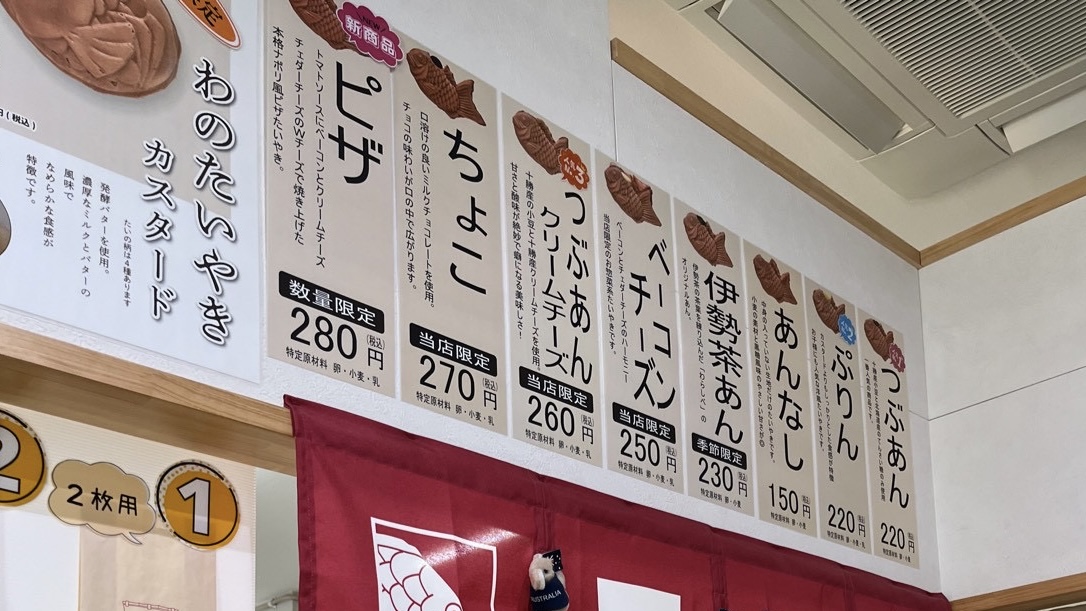 わのたいやき
カスタード
たいの柄は4種あります
発酵バターを使用。
濃厚なミルクとバターの
風味で
なめらかな食感が
特徴です。
(税込)
新商品
ピザ
トマトソースにベーコンとクリームチーズ
チェダーチーズのWチーズで焼き上げた
本格ナポリ風ピザたいやき。
数量限定
280円
(税込)
特定原材料 卵・小麦・乳
ちょこ
口溶けの良いミルクチョコレートを使用。
チョコの味わいが口の中で広がります。
当店限定
270円
(税込)
特定原材料 卵・小麦・乳
3
つぶあん
クリームチーズ
十勝産の小豆と十勝産クリームチーズを使用。
甘さと酸味が絶妙で癖になる美味しさ!
当店限定
260円
(税込)
特定原材料 卵・小麦・乳
ベーコン
チーズ
ベーコンとチェダーチーズのハーモニー
当店限定のお惣菜系たいやきです。
当店限定
250円
(税込)
特定原材料 卵・小麦・乳
伊勢茶あん
伊勢茶の茶葉を練り込んだ「わらしべ」の
オリジナルあん。
季節限定
230円
(税込)
特定原材料 卵・小麦
あんなし
中身の入っていない生地だけのたいやきです。
小麦の素材と黒糖風味のやさしい甘さが◎
150円
(税込)
特定原材料 卵・小麦
2
ぷりん
お子様にも人気な洋風たいやきです。
220円
(税込)
特定原材料 卵・小麦・乳
つぶあん
一番人気の商品です。
220円
(税込)
特定原材料 卵・小麦
2
2枚用
1
AUSTRALIA